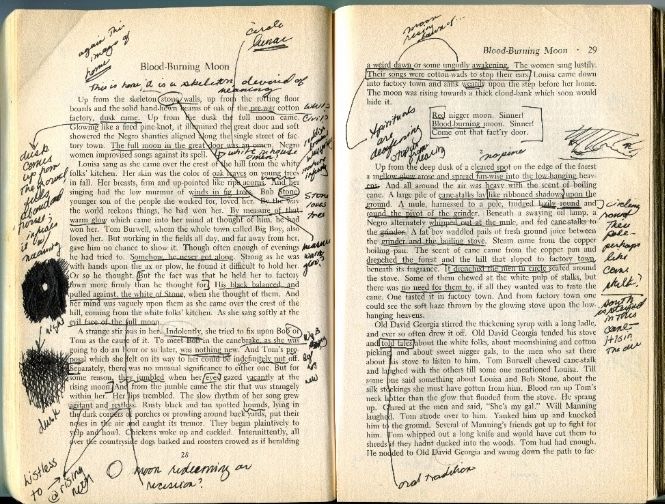 again this
image of
home
Blood-Burning Moon
Up from the skeleton stone walls, up from the rotting floor
boards and the solid hand-hewn beams of oak of the pre-war cotton
factory, dusk came. Up from the dusk the full moon came.
Glowing like a fired pine-knot, it illumined the great door and soft
showered the Negro shanties aligned along the single street of fac-
tory town. The full moon in the great door was an omen. Negro
women improvised songs against its spell.
Louisa sang as she came over the crest of the hill from the white
folks' kitchen. Her skin was the color of oak leaves on young trees
in fall. Her breasts, firm and up-pointed like ripe acorns. And her
singing had the low murmur of winds in fig trees. Bob Stone,
younger son of the people she worked for, loved her. By the way
the world reckons things, he had won her. By measure of that
warm glow which came into her mind at thought of him, he had
won her. Tom Burwell, whom the whole town called Big Boy, also
loved her. But working in the fields all day, and far away from her,
gave him no chance to show it. Though often enough of evenings
he had tried to. Somehow, he never got along. Strong as he was
with hands upon the ax or plow, he found it difficult to hold her.
Or so he thought. But the fact was that he held her to factory
town more firmly than he thought for. His black balanced, and
pulled against, the white of Stone, when she thought of them. And
her mind was vaguely upon them as she came over the crest of the
hill, coming from the white folks' kitchen. As she sang softly at the
evil face of the full moon.
A strange stir was in her. Indolently, she tried to fix upon Bob or
Tom as the cause of it. To meet Bob in the canebrake, as she was
going to do an hour or so later, was nothing new. And Tom's pro-
posal which she felt on its way to her could be indefinitely put off.
Separately, there was no unusual significance to either one. But for
some reason, they jumbled when her eyes gazed vacantly at the
rising moon. And from the jumble came the stir that was strangely
within her. Her lips trembled. The slow rhythm of her song grew
agitant and restless. Rusty black and tan spotted hounds, lying in
the dark corners of porches or prowling around back yards, put their
noses in the air and caught its tremor. They began plaintively to
yelp and howl. Chickens woke up and cackled. Intermittently, all
over the countryside dogs barked and roosters crowed as if heralding
28
dusk
listless
to
rising
moon redeeming or
Blood-Burning Moon · 29
a weird dawn or some ungodly awakening. The women sang lustily.
Their songs were cotton-wads to stop their ears. Louisa came down
into factory town and sank wearily upon the step before her home.
The moon was rising towards a thick cloud-bank which soon would
hide it.
Red nigger moon. Sinner!
Blood-burning moon. Sinner!
Come out that fact'ry door.
Up from the deep dusk of a cleared spot on the edge of the forest
a mellow glow arose and spread fan-wise into the low-hanging heav-
ens. And all around the air was heavy with the scent of boiling
cane. A large pile of cane-stalks lay like ribboned shadows upon the
ground. A mule, harnessed to a pole, trudged lazily round and
round the pivot of the grinder. Beneath a swaying oil lamp, a
Negro alternately whipped out at the mule, and fed cane-stalks to
the grinder. A fat boy waddled pails of fresh ground juice between
the grinder and the boiling stove. Steam came from the copper
boiling pan. The scent of cane came from the copper pan and
drenched the forest and the hill that sloped to factory town,
beneath its fragrance. It drenched the men in circle seated around
the stove. Some of them chewed at the white pulp of stalks, but
there was no need for them to, if all they wanted was to taste the
cane. One tasted it in factory town. And from factory town one
could see the soft haze thrown by the glowing stove upon the low-
hanging heavens.
Old David Georgia stirred the thickening syrup with a long ladle,
and ever so often drew it off. Old David Georgia tended his stove
and told tales about the white folks, about moonshining and cotton
picking, and about sweet nigger gals, to the men who sat there
about his stove to listen to him. Tom Burwell chewed cane-stalk
and laughed with the others till some one mentioned Louisa. Till
some one said something about Louisa and Bob Stone, about the
silk stockings she must have gotten from him. Blood ran up Tom's
neck hotter than the glow that flooded from the stove. He sprang
up. Glared at the men and said, "She's my gal." Will Manning
laughed. Tom strode over to him. Yanked him up and knocked
him to the ground. Several of Manning's friends got up to fight for
him. Tom whipped out a long knife and would have cut them to
shreds if they hadnt ducked into the woods. Tom had had enough.
He nodded to Old David Georgia and swung down the path to fac-
Spirituals
are
perhaps
like
cane
stalk?
oral tradition